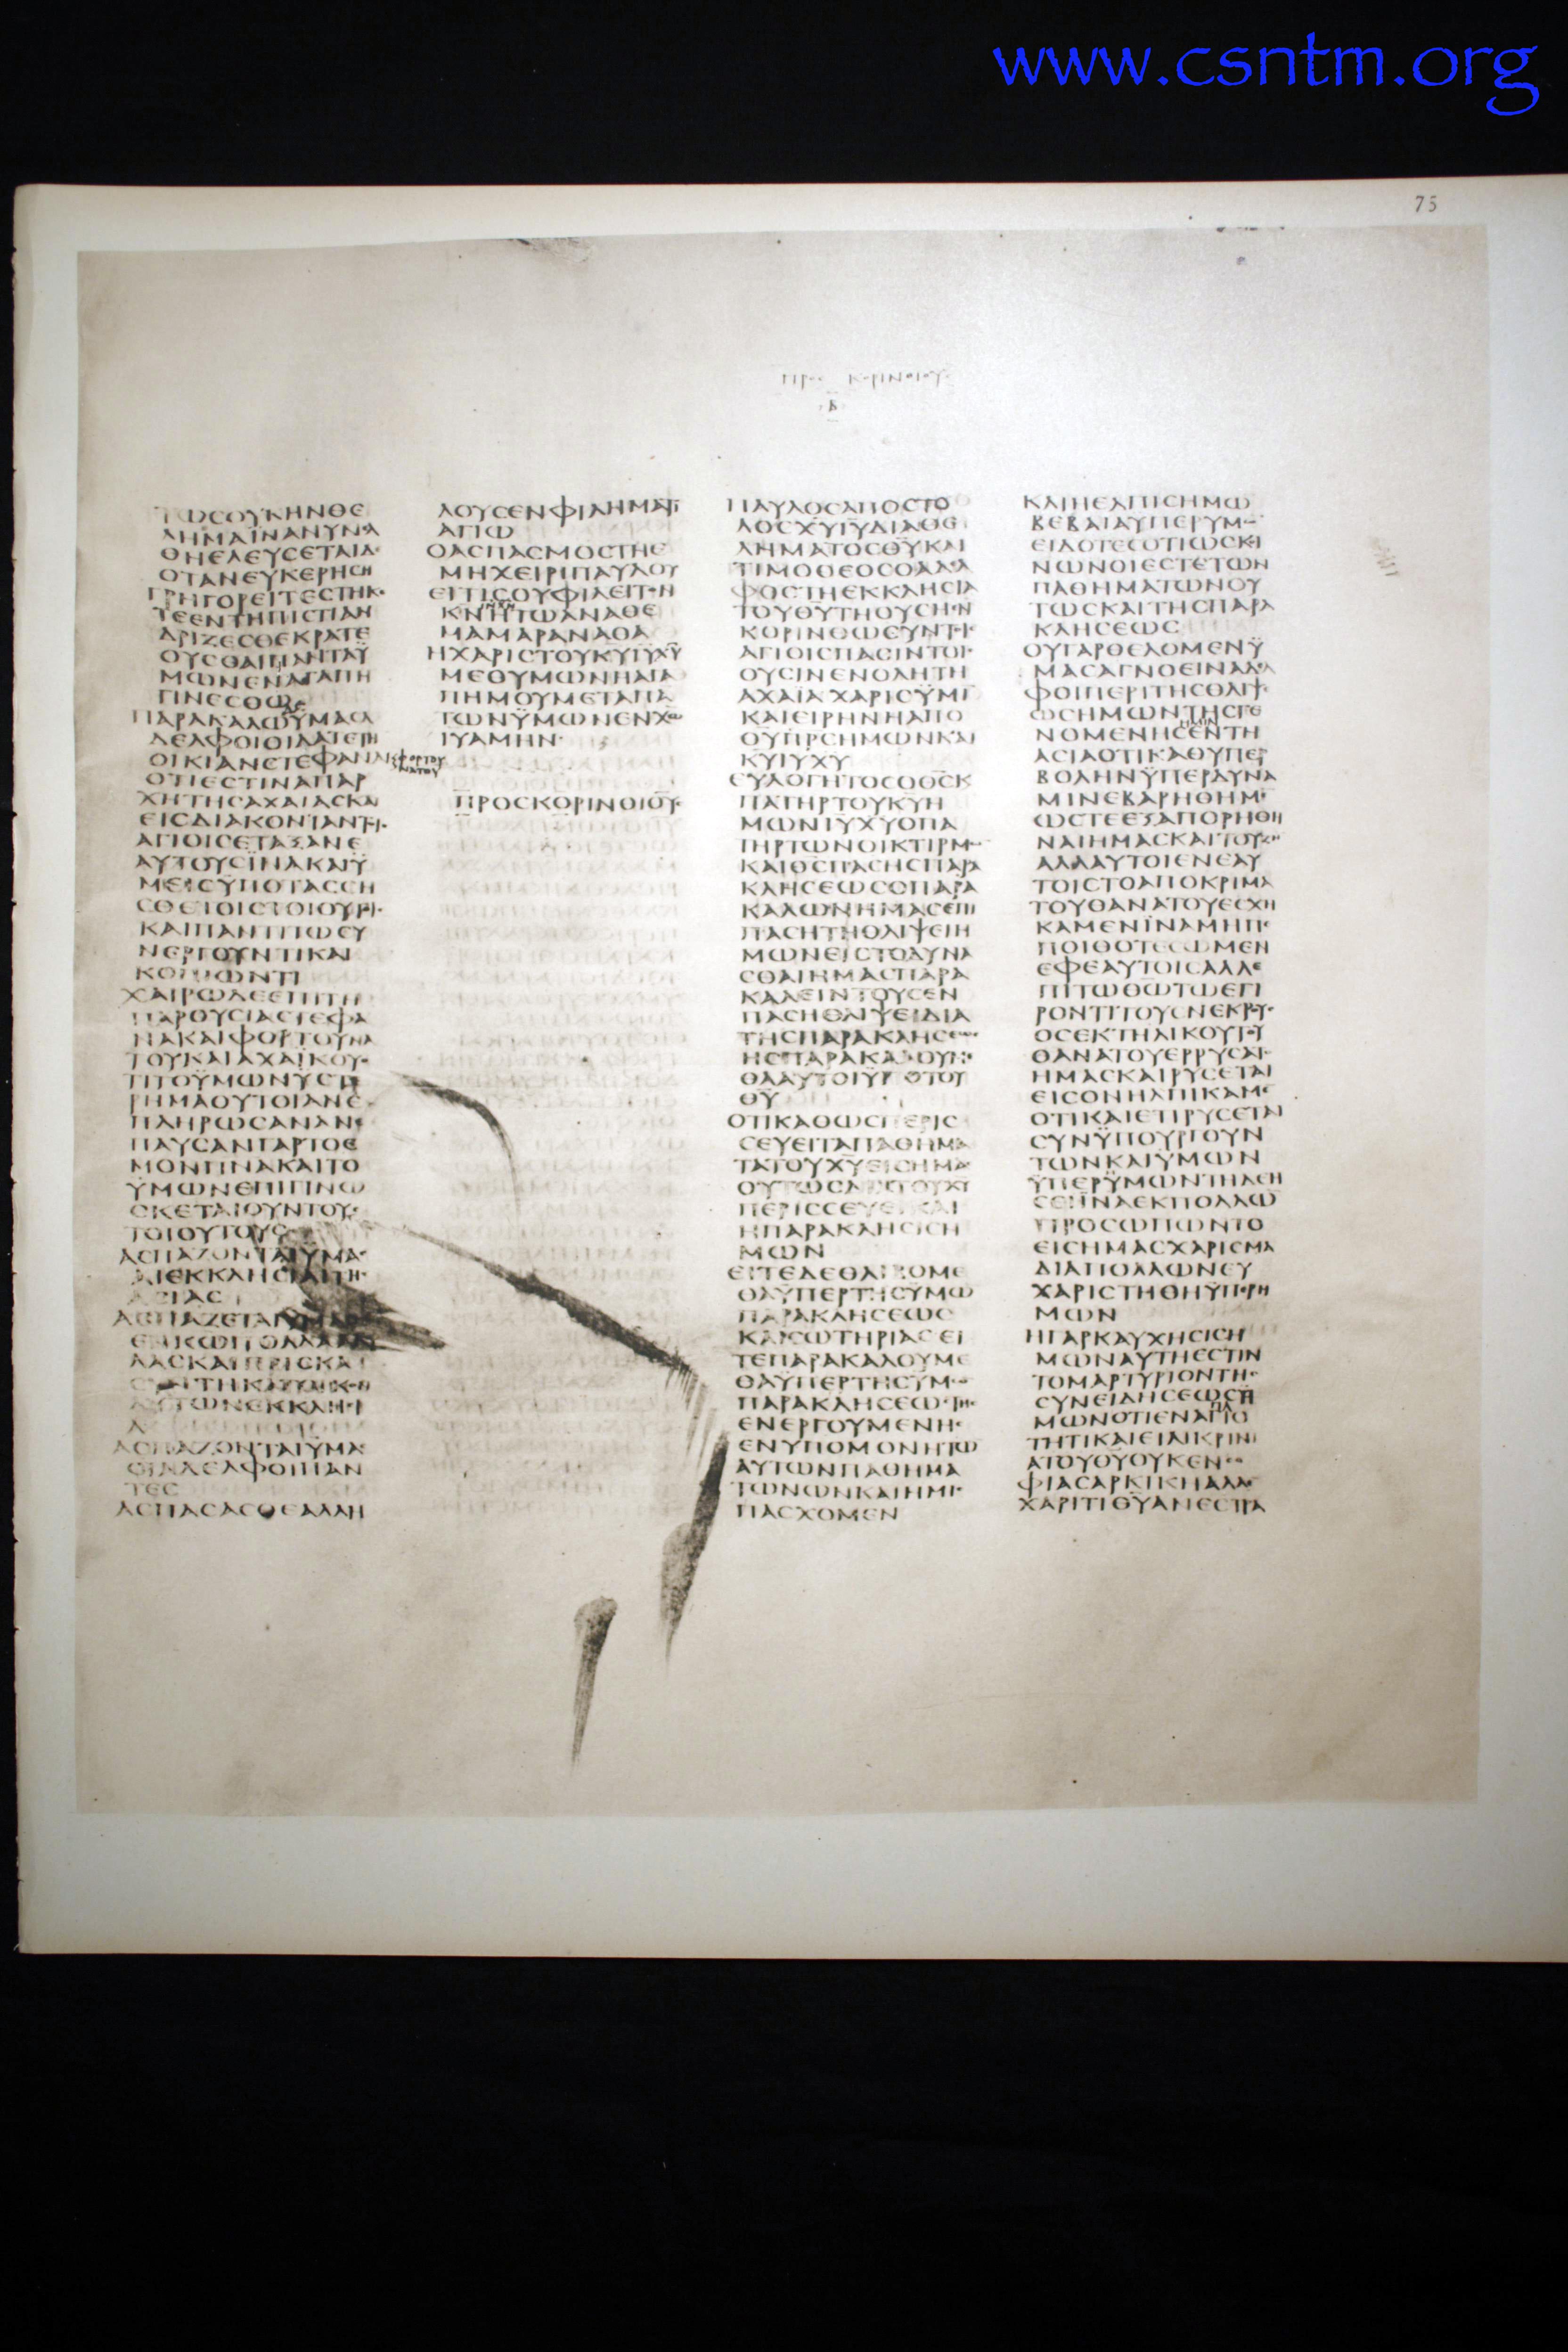 www.csntm.org
75
ΤΩCΟΥΚΗΝΘΕ
ΛΗΜΑΪΝΑΝΥΝΕΛ
ΘΗΕΛΕΥCΕΤΑΙΔΕ
ΟΤΑΝΕΥΚΕΡΗCΗ
ΓΡΗΓΟΡΕΙΤΕCΤΗΚΕ
ΤΕΕΝΤΗΠΙCΤΙΑΝ
ΔΡΙΖΕCΘΕΚΡΑΤΕ
ΜΩΝΕΝΑΓΑΠΗ
ΓΙΝΕCΘΩ
ΠΑΡΑΚΑΛΩΫΜΑCΑ
ΟΤΙΕCΤΙΝΑΠΑΡ
ΧΗΤΗCΑΧΑΙΑCΚΑΙ
ΕΙCΔΙΑΚΟΝΙΑΝΤΟΙC
ΑΓΙΟΙCΕΤΑΞΑΝΕ
ΑΥΤΟΥCΪΝΑΚΑΙΫ
ΜΕΙCΫΠΟΤΑCCΗ
CΘΕΤΟΙCΤΟΙΟΥΤΟΙC
ΚΑΙΠΑΝΤΙΤΩCΥ
ΝΕΡΓΟΥΝΤΙΚΑΙ
ΚΟΠΙΩΝΤΙ
ΧΑΙΡΩΔΕΕΠΙΤΗ
ΠΑΡΟΥCΙΑCΤΕΦΑ
ΝΑΚΑΙΦΟΡΤΟΥΝΑ
ΤΟΥΚΑΙΑΧΑΪΚΟΥ
ΡΗΜΑΟΥΤΟΙΑΝΕ
ΠΛΗΡΩCΑΝΑΝΕ
ΠΑΥCΑΝΓΑΡΤΟΕ
ΜΟΝΠΝΑΚΑΙΤΟ
ΫΜΩΝΕΠΙΓΙΝΩ
CΚΕΤΑΙΟΥΝΤΟΥC
ΤΟΙΟΥΤΟΥC
ΑCΠΑΖΟΝΤΑΙΫΜΑC
ΑΙΕΚΚΛΗCΙΑΙΤΗC
ΑCΙΑC
ΑCΠΑΖΟΝΤΑΙΫΜΑC
ΟΙΑΔΕΛΦΟΙΠΑΝ
ΤΕC
ΑCΠΑCΑCΘΕΑΛΛΗ
ΛΟΥCΕΝΦΙΛΗΜΑΤΙ
ΑΓΙΩ
ΟΑCΠΑCΜΟCΤΗΕ
ΜΗΧΕΙΡΙΠΑΥΛΟΥ
ΕΙΤΙCΟΥΦΙΛΕΙΤΟΝ
ΚΝΗΤΩΑΝΑΘΕ
ΜΑΜΑΡΑΝΑΘΑ
ΗΧΑΡΙCΤΟΥΚΥΙΥΧΥ
ΜΕΘΥΜΩΝΗΑΓΑ
ΠΗΜΟΥΜΕΤΑΠΑ
ΤΩΝΫΜΩΝΕΝΧΩ
ΙΥΑΜΗΝ
ΠΡΟCΚΟΡΙΝΘΙΟΥC
ΠΡΟC ΚΟΡΙΝΘΙΟΥC
Β
ΠΑΥΛΟCΑΠΟCΤΟ
ΛΟCΧΥΙΥΔΙΑΘΕ
ΛΗΜΑΤΟCΘΥΚΑΙ
ΤΙΜΟΘΕΟCΟΑΔΕΛ
ΦΟCΤΗΕΚΚΛΗCΙΑ
ΤΟΥΘΥΤΗΟΥCΗΕΝ
ΚΟΡΙΝΘΩCΥΝΤΟΙC
ΑΓΙΟΙCΠΑCΙΝΤΟΙC
ΟΥCΙΝΕΝΟΛΗΤΗ
ΑΧΑΪΑΧΑΡΙCΫΜΙ
ΚΑΙΕΙΡΗΝΗΑΠΟ
ΘΥΠΡCΗΜΩΝΚΑΙ
ΚΥΙΥΧΥ
ΕΥΛΟΓΗΤΟCΟΘCΚ
ΠΑΤΗΡΤΟΥΚΥΗ
ΜΩΝΙΥΧΥΟΠΑ
ΤΗΡΤΩΝΟΙΚΤΙΡΜΩ
ΚΑΙΘCΠΑCΗCΠΑΡΑ
ΚΛΗCΕΩCΟΠΑΡΑ
ΚΑΛΩΝΗΜΑCΕΠΙ
ΠΑCΗΤΗΘΛΙΨΕΙΗ
ΜΩΝΕΙCΤΟΔΥΝΑ
CΘΑΙΗΜΑCΠΑΡΑ
ΚΑΛΕΙΝΤΟΥCΕΝ
ΠΑCΗΘΛΙΨΕΙΔΙΑ
ΤΗCΠΑΡΑΚΛΗCΕΩC
ΗCΠΑΡΑΚΑΛΟΥΜΕ
ΘΑΑΥΤΟΙΫΠΟΤΟΥ
ΘΥ
ΟΤΙΚΑΘΩCΠΕΡΙC
CΕΥΕΙΤΑΠΑΘΗΜΑ
ΤΑΤΟΥΧΥΕΙCΗΜΑ
ΠΕΡΙCCΕΥΕΙΚΑΙ
ΗΠΑΡΑΚΛΗCΙCΗ
ΜΩΝ
ΕΙΤΕΔΕΘΛΙΒΟΜΕ
ΘΑΫΠΕΡΤΗCΫΜΩ
ΠΑΡΑΚΛΗCΕΩC
ΚΑΙCΩΤΗΡΙΑCΕΙ
ΤΕΠΑΡΑΚΑΛΟΥΜΕ
ΘΑΫΠΕΡΤΗCΫΜΩ
ΠΑΡΑΚΛΗCΕΩCΤΗC
ΕΝΕΡΓΟΥΜΕΝΗC
ΕΝΥΠΟΜΟΝΗΤΩ
ΑΥΤΩΝΠΑΘΗΜΑ
ΤΩΝΩΝΚΑΙΗΜΙC
ΠΑCΧΟΜΕΝ
ΚΑΙΗΕΛΠΙCΗΜΩ
ΒΕΒΑΙΑΥΠΕΡΥΜΩ
ΕΙΔΟΤΕCΟΤΙΩCΚΟΙ
ΝΩΝΟΙΕCΤΕΤΩΝ
ΠΑΘΗΜΑΤΩΝΟΥ
ΤΩCΚΑΙΤΗCΠΑΡΑ
ΚΛΗCΕΩC
ΟΥΓΑΡΘΕΛΟΜΕΝΫ
ΜΑCΑΓΝΟΕΙΝΑΔΕΛ
ΦΟΙΠΕΡΙΤΗCΘΛΙΨΕ
ΩCΗΜΩΝΤΗCΓΕ
ΝΟΜΕΝΗCΕΝΤΗ
ΑCΙΑΟΤΙΚΑΘΥΠΕΡ
ΒΟΛΗΝΫΠΕΡΔΥΝΑ
ΜΙΝΕΒΑΡΗΘΗΜΕ
ΩCΤΕΕΞΑΠΟΡΗΘΗ
ΝΑΙΗΜΑCΚΑΙΤΟΥΖΗ
ΑΛΛΑΑΥΤΟΙΕΝΕΑΥ
ΤΟΙCΤΟΑΠΟΚΡΙΜΑ
ΤΟΥΘΑΝΑΤΟΥΕCΧΗ
ΚΑΜΕΝΪΝΑΜΗΠΕ
ΠΟΙΘΟΤΕCΩΜΕΝ
ΕΦΕΑΥΤΟΙCΑΛΛΕ
ΠΙΤΩΘΩΤΩΕΓΙ
ΡΟΝΤΙΤΟΥCΝΕΚΡΟΥ
ΟCΕΚΤΗΛΙΚΟΥΤΟΥ
ΘΑΝΑΤΟΥΕΡΡΥCΑΤΟ
ΗΜΑCΚΑΙΡΥCΕΤΑΙ
ΕΙCΟΝΗΛΠΙΚΑΜΕ
ΟΤΙΚΑΙΕΤΙΡΥCΕΤΑΙ
CΥΝΫΠΟΥΡΓΟΥΝ
ΤΩΝΚΑΙΫΜΩΝ
ΫΠΕΡΫΜΩΝΤΗΔΕΗ
CΕΙΪΝΑΕΚΠΟΛΛΩ
ΠΡΟCΩΠΩΝΤΟ
ΕΙCΗΜΑCΧΑΡΙCΜΑ
ΔΙΑΠΟΛΛΩΝΕΥ
ΧΑΡΙCΤΗΘΗΫΠΕΡΗ
ΜΩΝ
ΗΓΑΡΚΑΥΧΗCΙCΗ
ΜΩΝΑΥΤΗΕCΤΙΝ
ΤΟΜΑΡΤΥΡΙΟΝΤΗC
CΥΝΕΙΔΗCΕΩCΗ
ΜΩΝΟΤΙΕΝΑΓΙΟ
ΤΗΤΙΚΑΙΕΙΛΙΚΡΙΝΙ
ΑΤΟΥΘΥΟΥΚΕΝCΟ
ΦΙΑCΑΡΚΙΚΗΑΛΛΕ
ΧΑΡΙΤΙΘΥΑΝΕCΤΡΑ